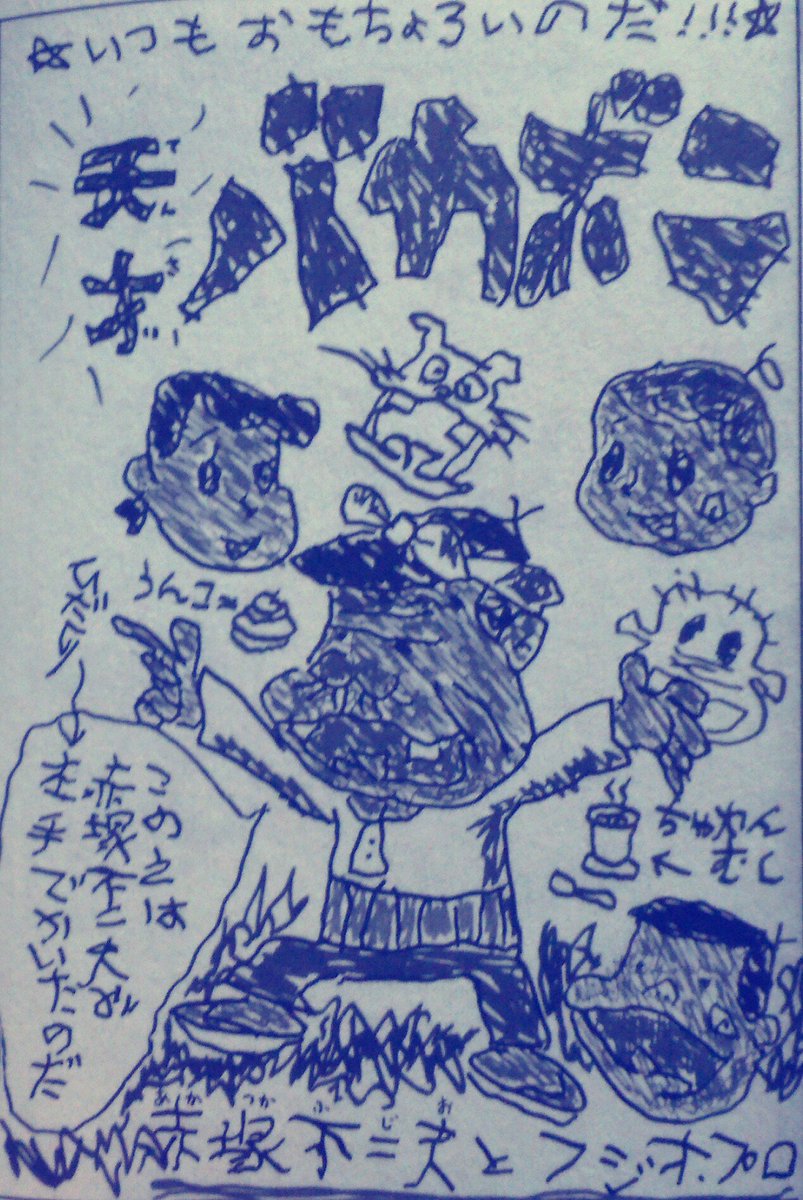 ☆いつもおもちょろいのだ!!!☆
天才
てんさい
バカボン
うんコ
ひだり
このえは
赤塚不二夫が
左手でかいたのだ
ちゃわん
むし
あかつかふじお
赤塚不二夫とフジオ・プロ